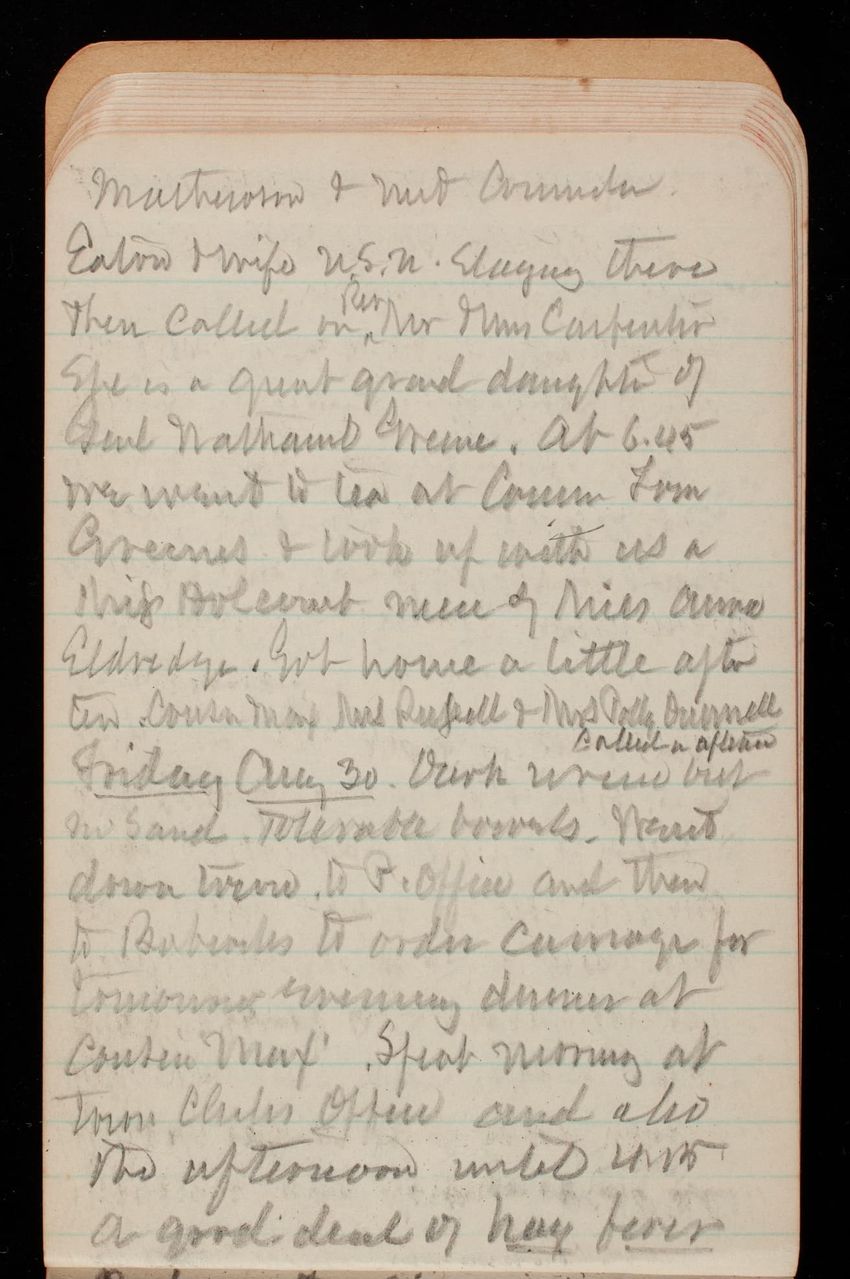 Mathewson & met Commder
Eaton & wife U.S.N. Staying there
Then called on Rev Mr & Mrs Carpenter
She is a great grand daughter of
Genl Nathanl Greene. At 6.45
we went to tea at Cousin Tom
Greenes & took up with us a
Miss niece of Miss Anna
Eldredge. Got home a little after
ten. Cousin Max Mrs Russell & Mrs Polly
called in aftern
Friday Aug 30. Dark urine but
no Sand. Tolerable bowels. Went
down town to P. Office and then
to to order carriage for
tomorrow evening dinner at
Cousin Max'. Spent morning at
Town Clerks Office and also
the afternoon until 4.15
A good deal of hay fever